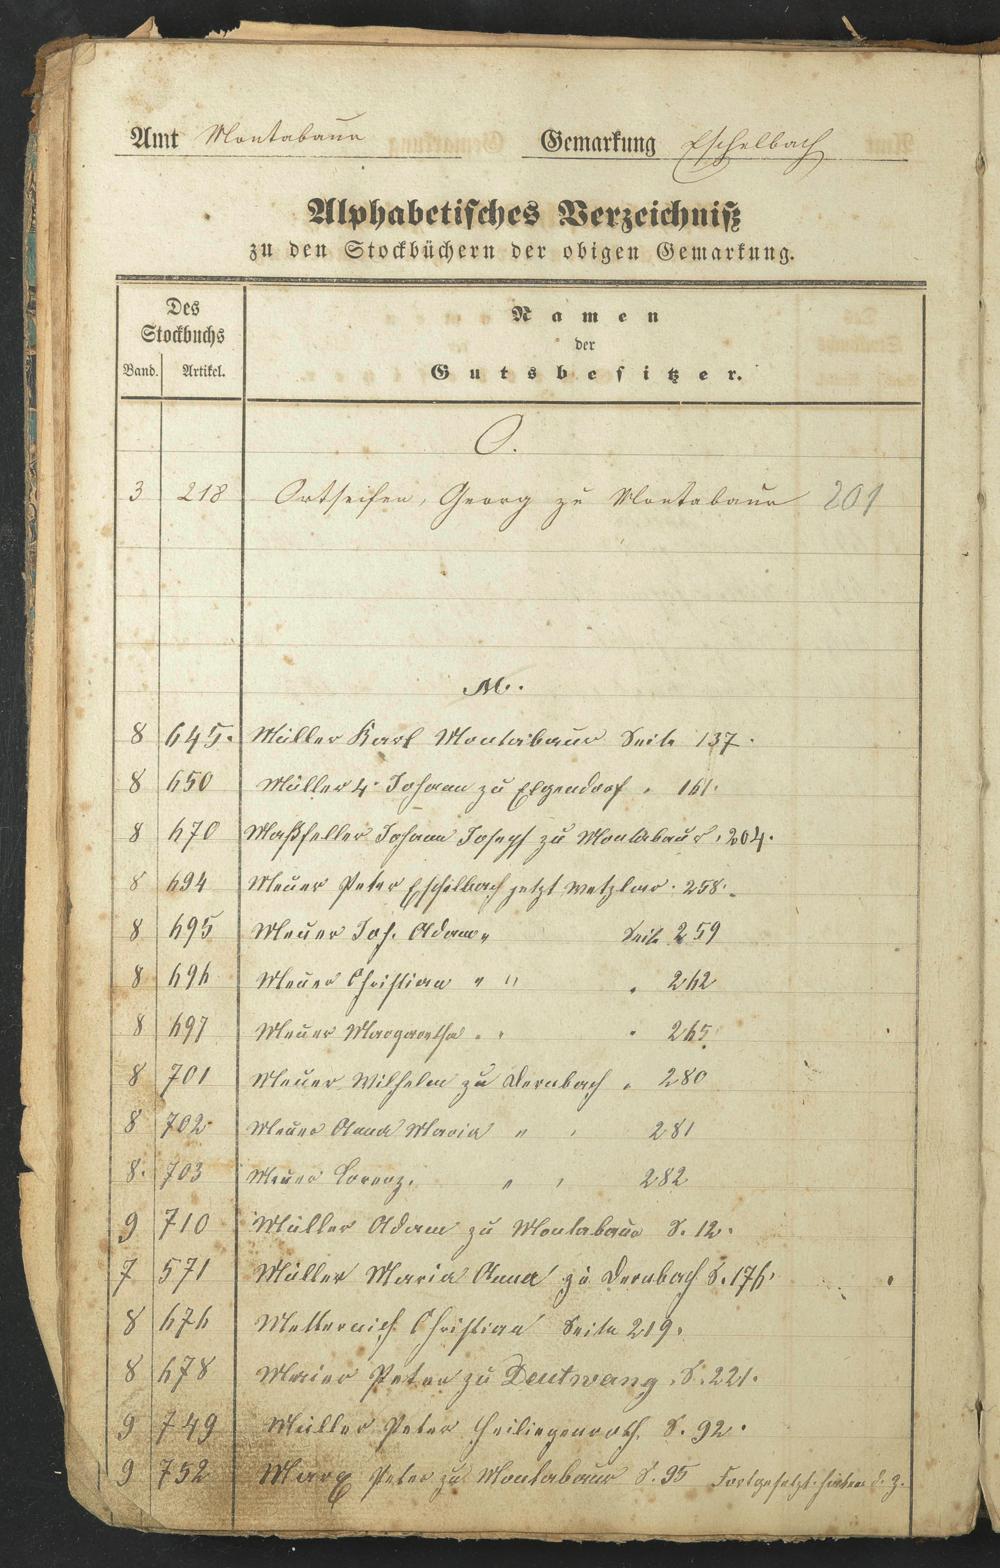 Amt Montabaur Gemarkung Eschelbach
Alphabetisches Verzeichniß
zu den Stockbüchern der obigen Gemarkung.
Des Stockbuchs
Band. Artikel.
Namen
der
Gutsbesitzer.
O.
3 218 Ortseifen, Georg zu Montabaur 201
M.
8 645. Müller Karl Montabaur Seite 137.
8 650 Müller 4r Johann zu Elgendorf " 161.
8 670 Maßfeller Johann Joseph zu Montabaur " 204.
8 694 Meuer Peter Eschelbach jetzt Wetzlar " 258.
8 695 Meuer Joh. Adam " Seite 259
8 696 Meuer Christian " " " 262
8 697 Meuer Margaretha " " " 265
8 701 Meuer Wilhelm zu Dernbach " 280
8 702 Meuer Anna Maria " " 281
8. 703 Meuer Lorenz. " " 282
9 710 Müller Adam zu Montabaur S. 12.
7 571 Müller Maria Anna zu Dernbach S. 176.
8 676 Metternich Christian Seite 219.
8 678 Maier Peter zu Deutwang S. 221.
9 749 Müller Peter Heiligenroth S. 92.
9 752 Marx Peter zu Montabaur S. 95 Fortgesetzt hinten